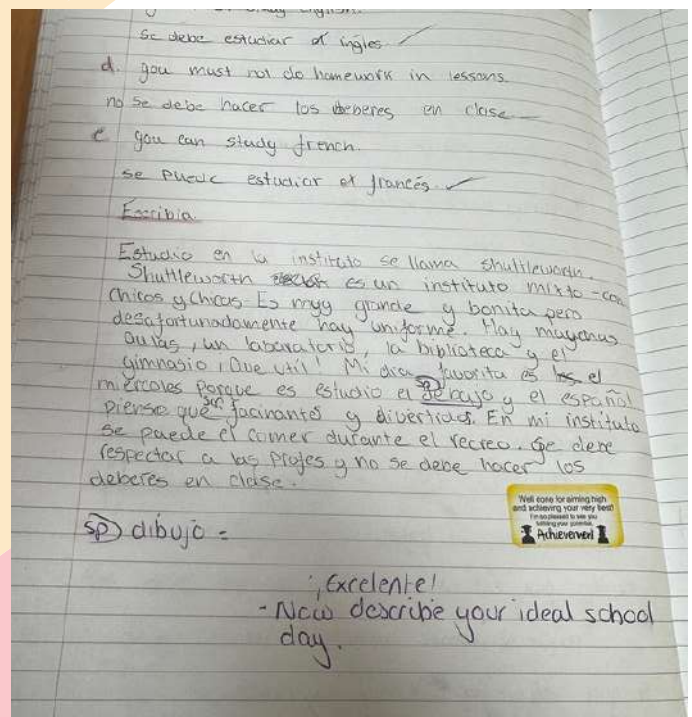 Study english.
se debe estudiar el ingles.
d. you must not do homework in lessons.
no se debe hacer los deberes en clase
e you can study french.
se puede estudiar el francés.
Escribia.
Estudio en la instituto se llama Shuttleworth.
Shuttleworth es un instituto mixto - con
chicos y chicas. Es muy grande y bonita pero
desafortunadamente hay uniforme. Hay
aulas, un laboratorio, la biblioteca y el
gimnasio, Que util! Mi dia favorita es el
miercoles porque es estudio el debujo y el español
sp
piense que son facinantes y divertidos. En mi instituto
se puede el comer durante el recreo. Se debe
respectar a las profes y no se debe hacer los
deberes en clase.
Well done for aiming high
and achieving your very best!
I'm so pleased to see you
Achievement
sp dibujo =
¡Excelente!
- Now describe your ideal school
day.